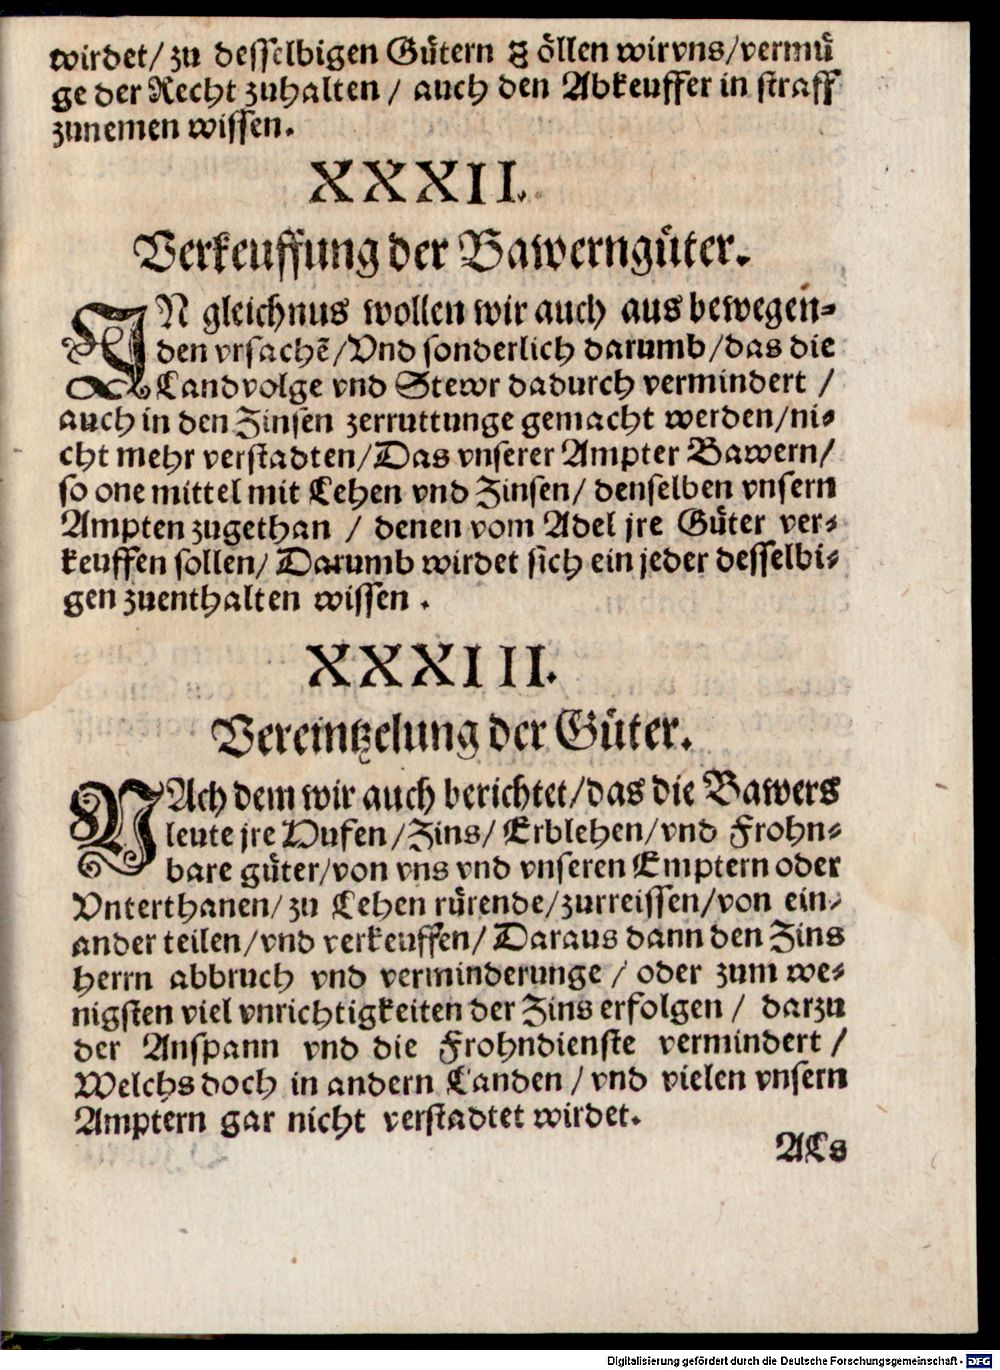 wirdet/ zu desselbigen Gütern söllen wir vns/vermü
ge der Recht zuhalten / auch den Abkeuffer in straff
zunemen wissen.
XXXII.
Verkeuffung der Bawerngüter.
IN gleichnus wollen wir auch aus bewegen-
den vrsachẽ/Vnd sonderlich darumb/das die
Landvolge vnd Stewr dadurch vermindert /
auch in den Zinsen zerruttunge gemacht werden/ni-
cht mehr verstadten/Das vnserer Ampter Bawern/
so one mittel mit Lehen vnd Zinsen/ denselben vnsern
Ampten zugethan / denen vom Adel jre Güter ver-
keuffen sollen/ Darumb wirdet sich ein jeder desselbi-
gen zuenthalten wissen .
XXXIII.
Vereintzelung der Güter.
NAch dem wir auch berichtet/das die Bawers
leute jre Hufen/Zins/ Erblehen/vnd Frohn-
bare güter/von vns vnd vnseren Emptern oder
Vnterthanen/ zu Lehen rürende/zurreissen/von ein-
ander teilen/vnd verkeuffen/ Daraus dann den Zins
herrn abbruch vnd verminderunge / oder zum we-
nigsten viel vnrichtigkeiten der Zins erfolgen / darzu
der Anspann vnd die Frohndienste vermindert /
Welchs doch in andern Landen / vnd vielen vnsern
Amptern gar nicht verstadtet wirdet.
ALs
Digitalisierung gefördert durch die Deutsche Forschungsgemeinschaft - DFG